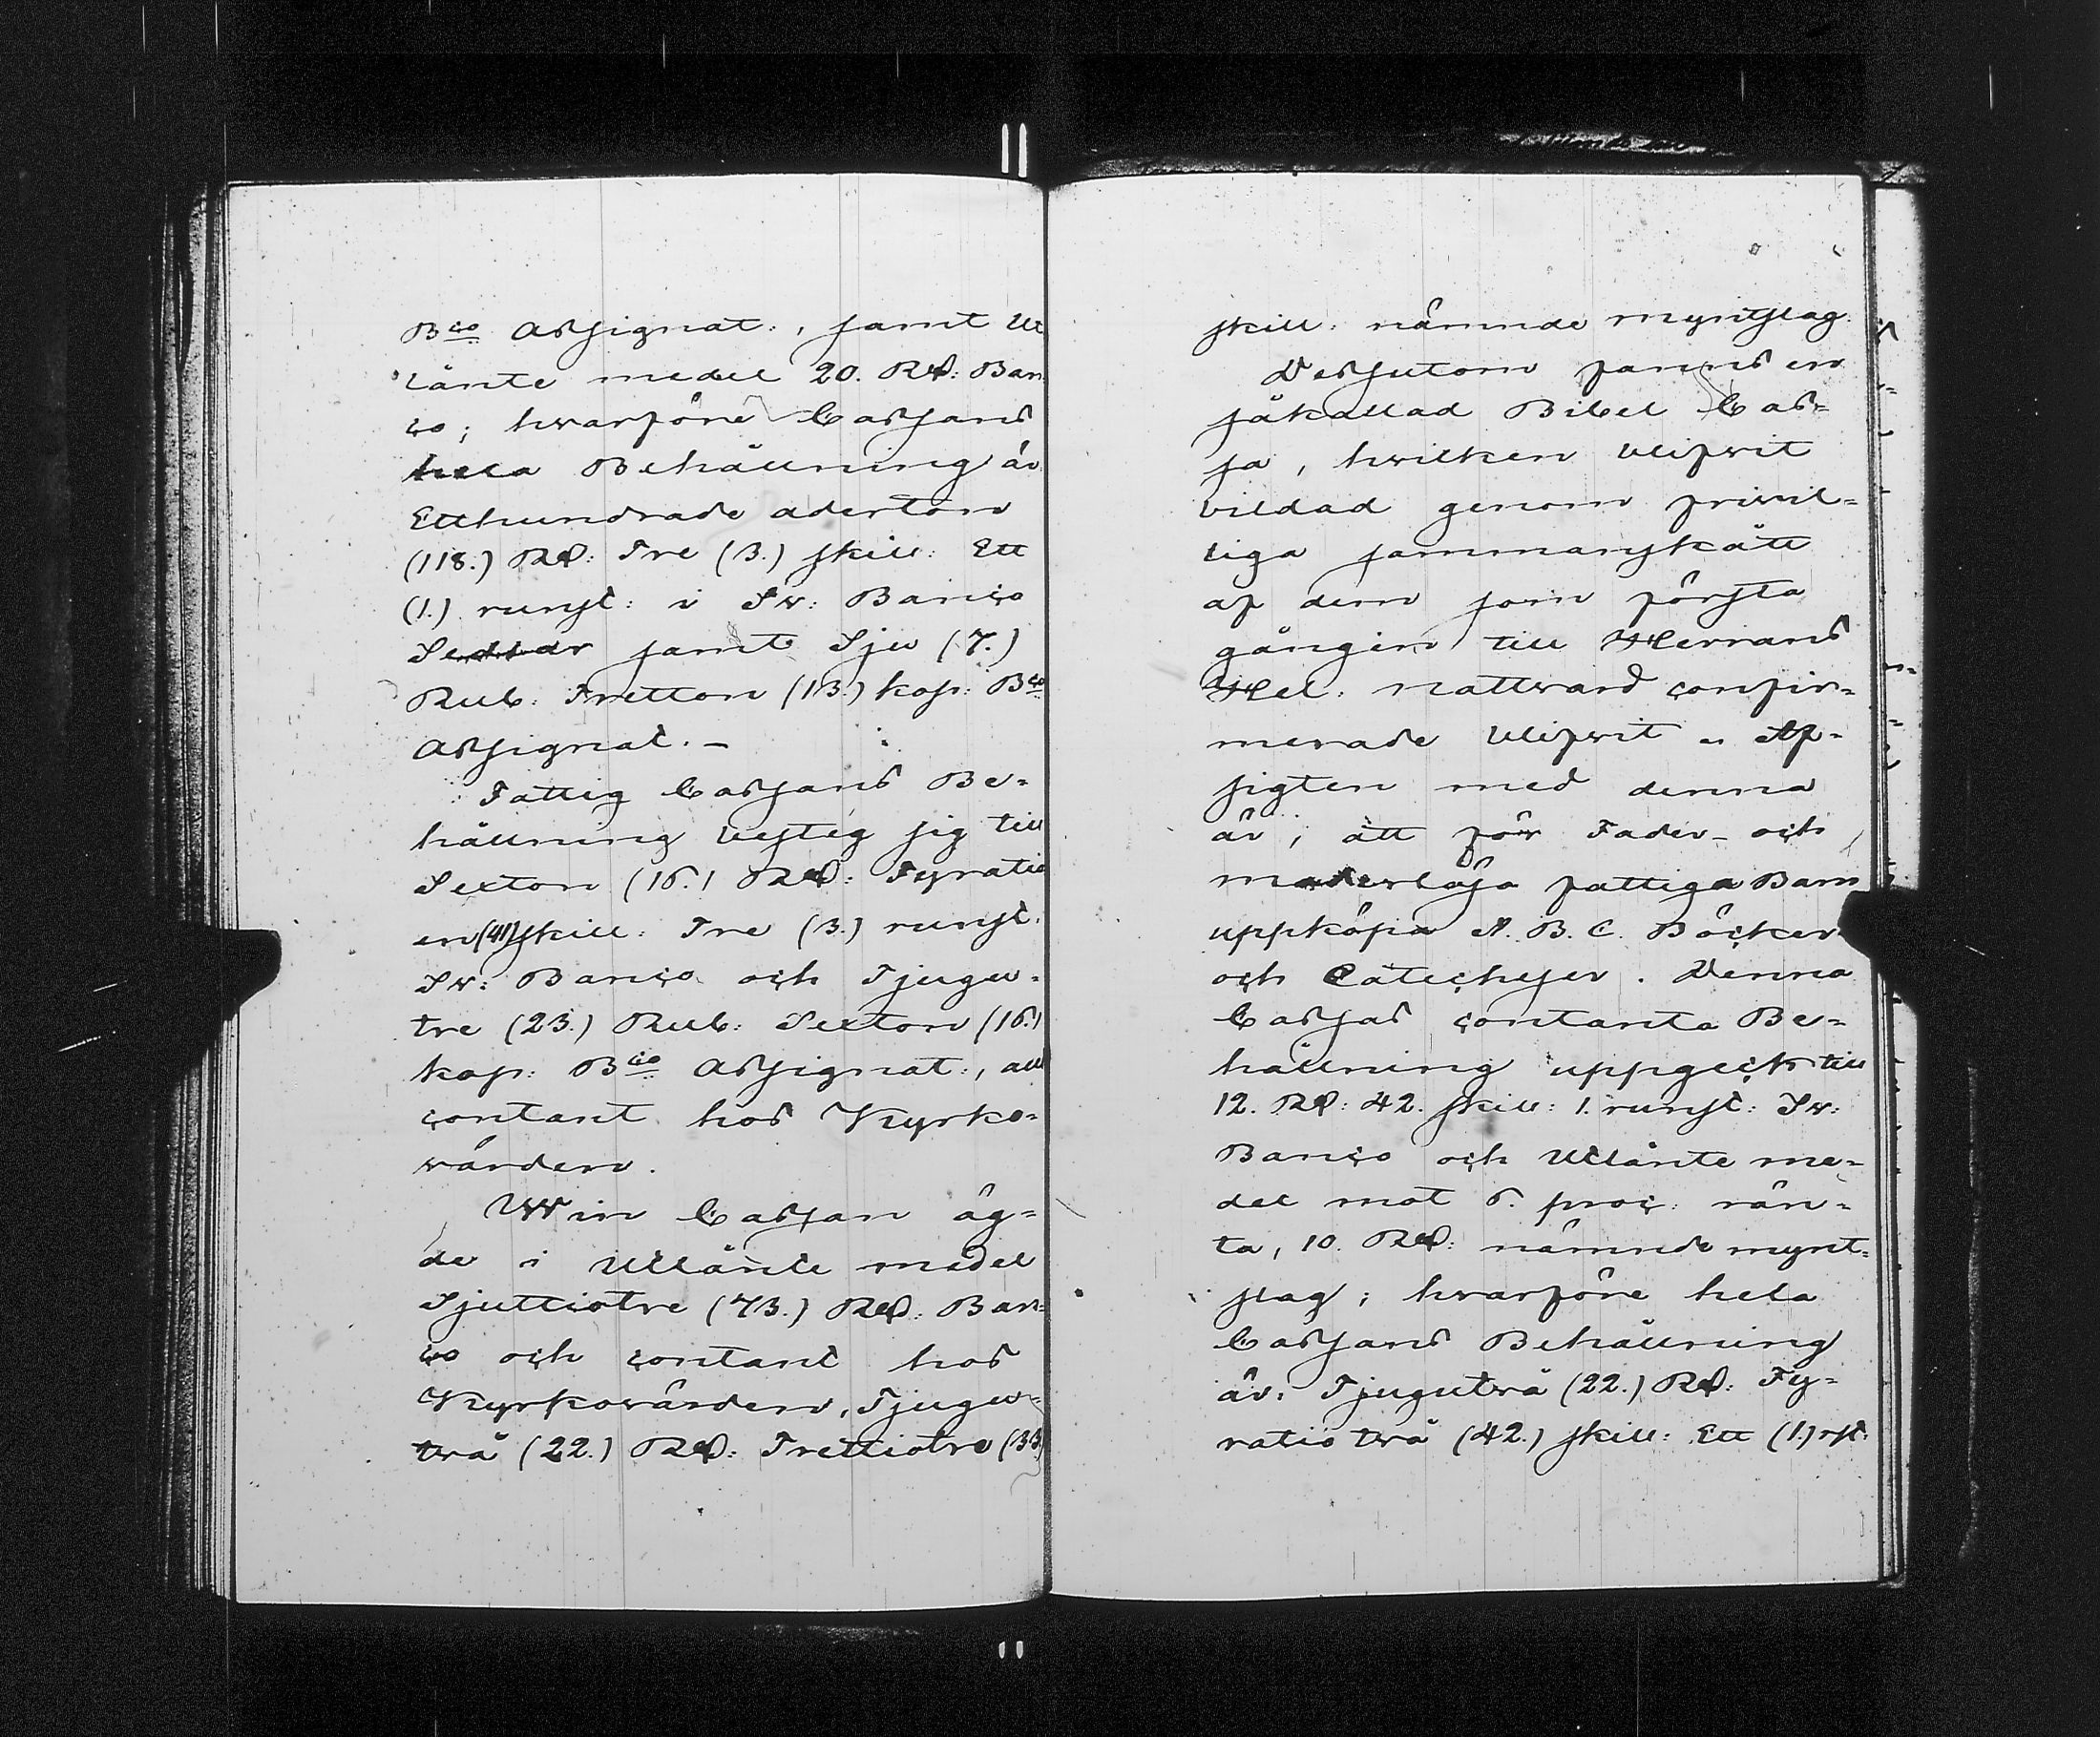 Bco Assignat:, samt Ut
länte medel 20. Rd: Ban
co; hvarföre Cassans
hela Behållning är
Etthundrade aderton
(118.) Rd: Tre (3.) skill: Ett
(1.) runst: i Sv: Banco
Sedlar samt Sju (7.)
Rub. Tretton (13.) kop: Bco
Assignat. –
Fattig Cassans Be=
hållning besteg sig till
Sexton (16.) Rd: Fyratio
en (41) skill: Tre (3.) runst.
Sv: Banco och Tjugu=
tre (23.) Rub: Sexton (16.)
kop: Bco Assignat:, allt
contant hos Kyrko=
värden.
Win Cassan äg=
de i Utlänte medel
Sjuttiotre (73.) Rd: Ban=
co och contant hos
Kyrkovärden, Tjugu=
två (22.) Rd: Trettiotre (33)
skill: nämnde myntslag.
Dessutom fanns en
såkallad Bibel Cas=
sa, hvilken blifvit
bildad genom frivil=
liga sammanskått
af dem som första
gången till Herrans
Hel: nattvard confir=
merade blifvit. Af=
sigten med denna
är, att för Fader- och
moderlösa fattiga Barn
uppköpa A. B. C. Böcker
och Catecheser. Denna
Cassas contanta Be=
hållning uppgeck till
12. Rd: 42. skill: 1. runst: Sv:
Banco och Utlänte me=
del mot 6. proc: rän=
ta, 10. Rd: nämnde mynt=
slag; hvarföre hela
Cassans Behållning
är: Tjugutvå (22.) Rd: Fy=
ratio två (42.) skill: Ett (1.) rst: